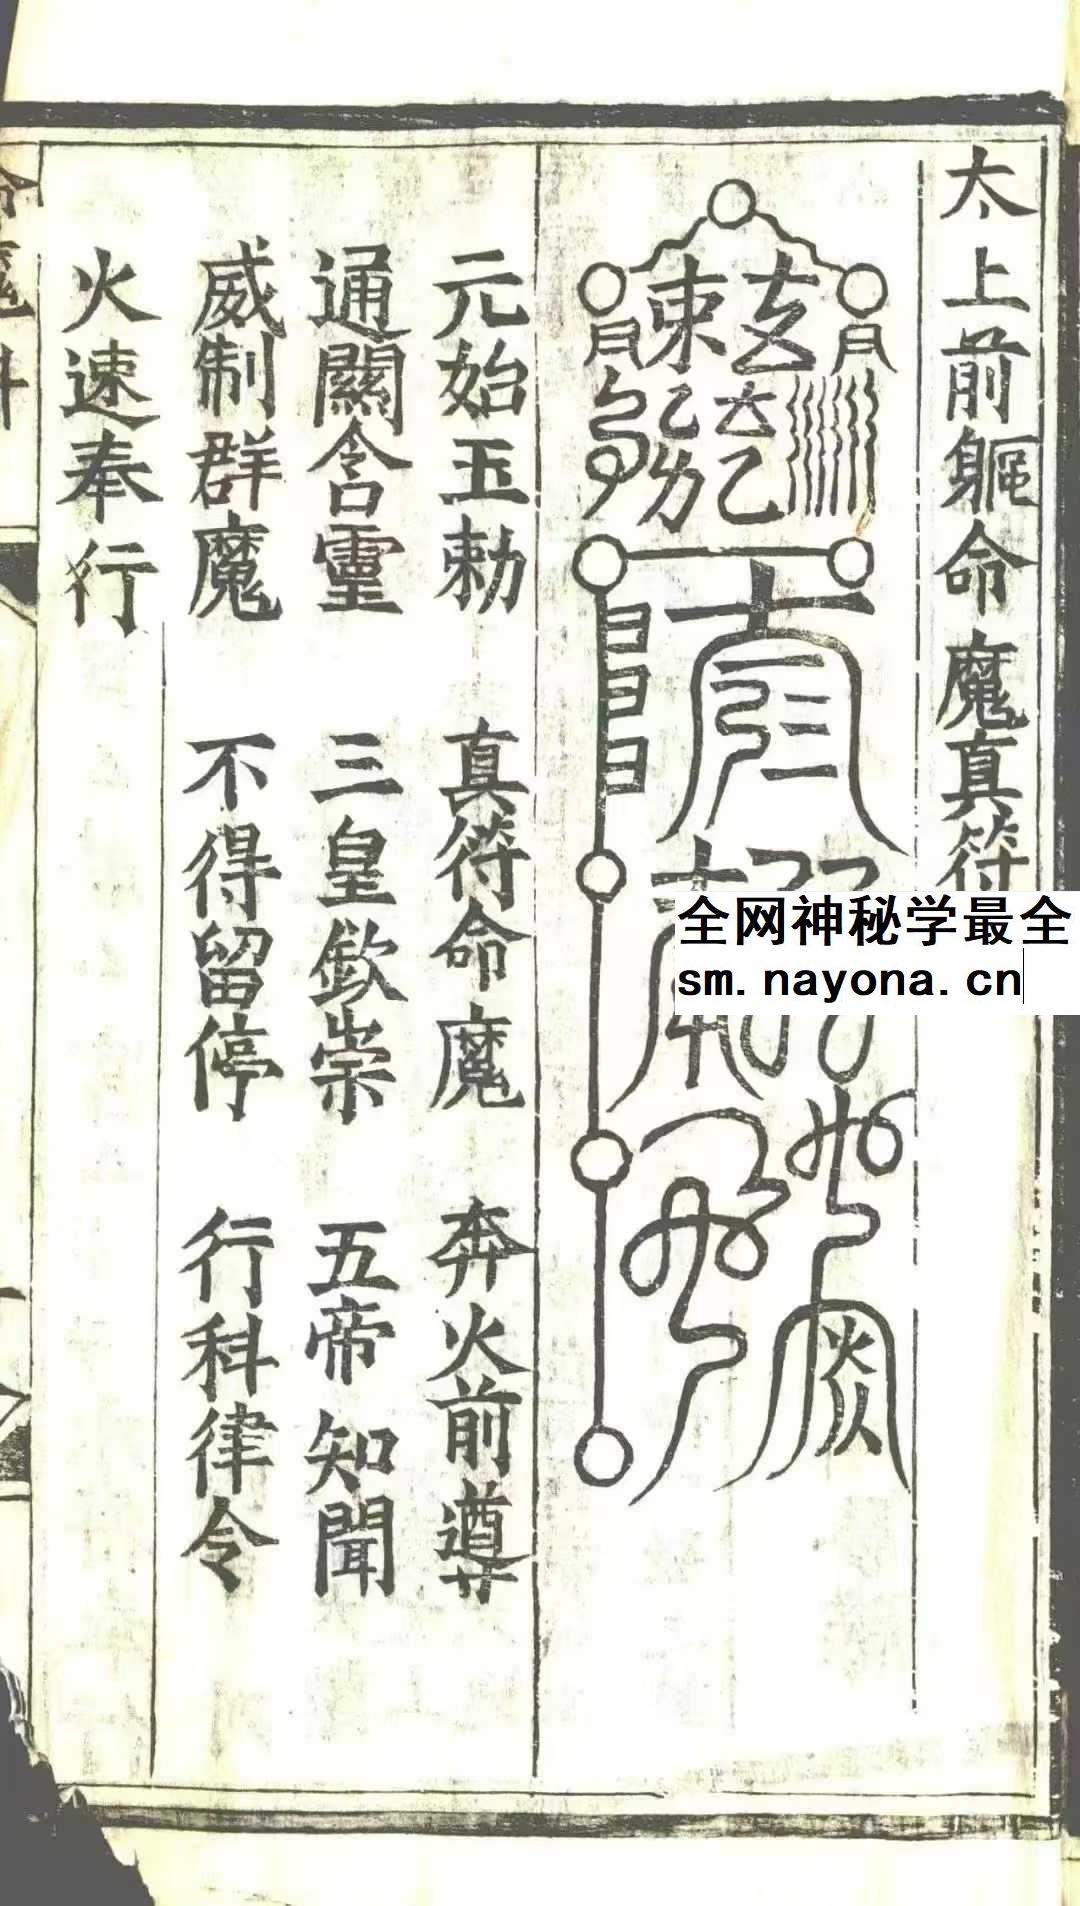 太上前軀命魔真符
元始玉勅　真符命魔　奔火前導
通關含靈　三皇欽崇　五帝知聞
威制群魔　不得留停　行科律令
火速奉行
全网神秘学最全
sm.nayona.cn